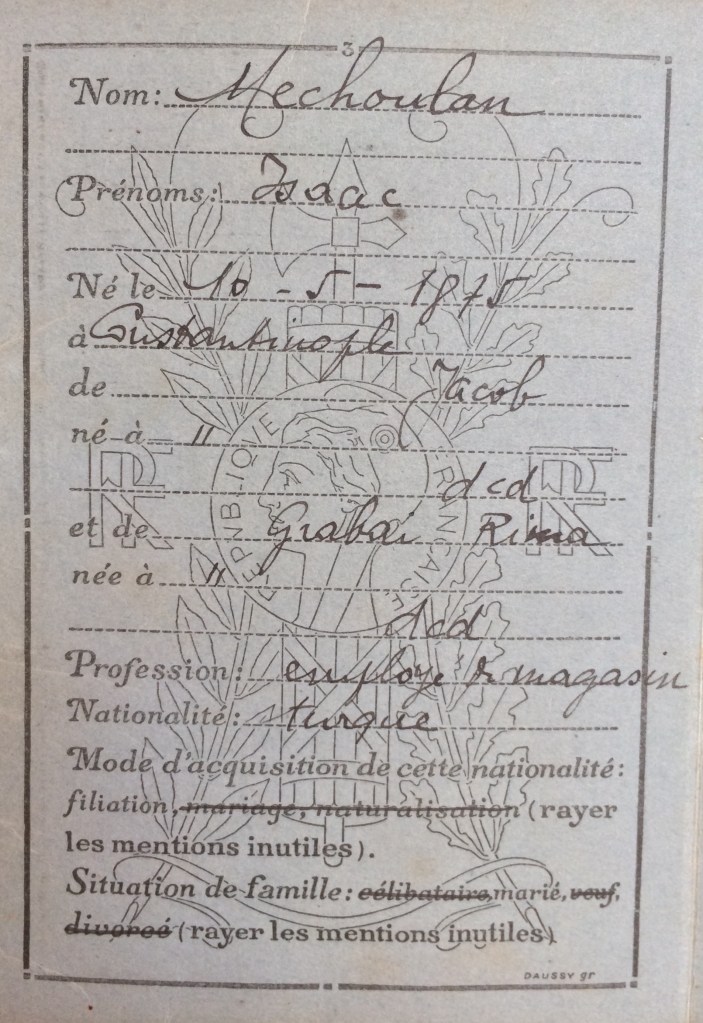 3
Nom: Mechoulan
Prénoms: Isaac
Né le 10 - 5 - 1875
à Constantinople
de Jacob
né à "
dcd
et de Grabai Rima
née à "
dcd
Profession: employé de magasin
Nationalité: turque
Mode d'acquisition de cette nationalité:
filiation, mariage, naturalisation (rayer
les mentions inutiles).
Situation de famille: célibataire, marié, veuf,
divorcé (rayer les mentions inutiles)
RÉPUBLIQUE FRANÇAISE
RF
RF
DAUSSY gr